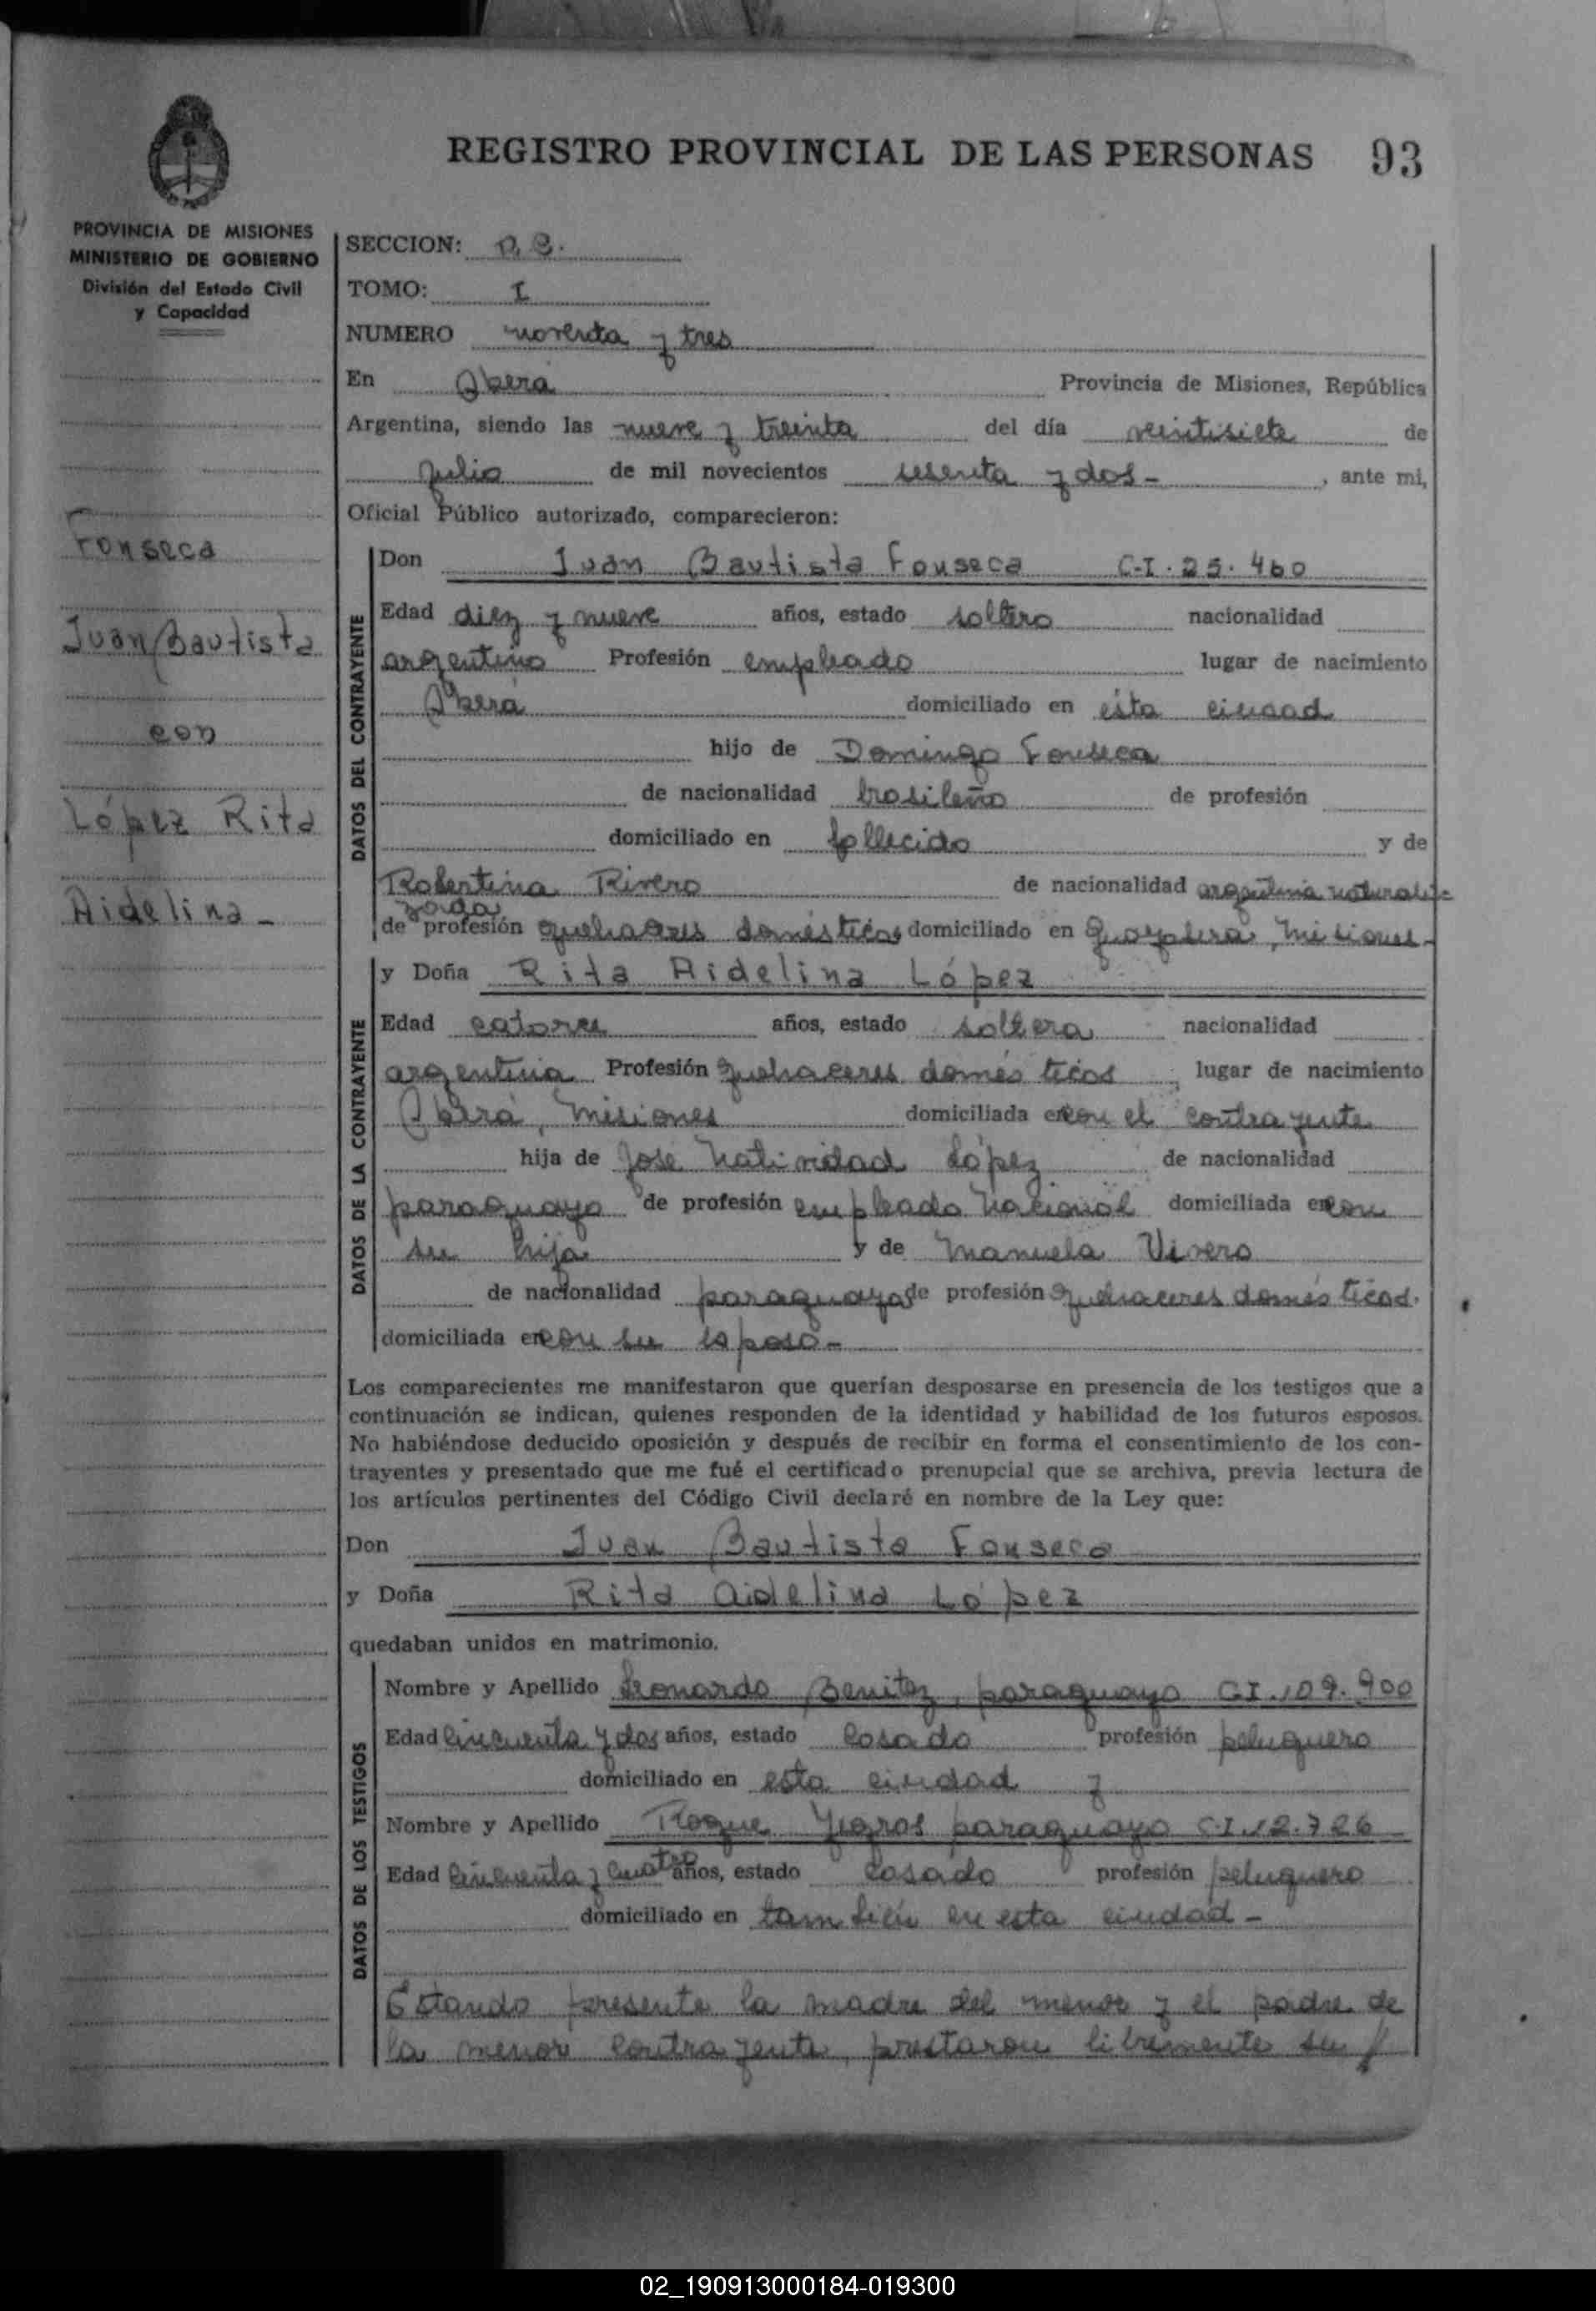 REGISTRO PROVINCIAL DE LAS PERSONAS 93
PROVINCIA DE MISIONES
MINISTERIO DE GOBIERNO
División del Estado Civil
y Capacidad
Fonseca
Juan Bautista
con
López Rita
Aidelina -
SECCION:
TOMO: I
NUMERO noventa y tres
En Oberá Provincia de Misiones, República
Argentina, siendo las nueve y treinta del día veintisiete de
julio de mil novecientos sesenta y dos - , ante mi,
Oficial Público autorizado, comparecieron:
DATOS DEL CONTRAYENTE
Don Juan Bautista Fonseca C.I. 25.460
Edad diez y nueve años, estado soltero nacionalidad
argentino Profesión empleado lugar de nacimiento
Oberá domiciliado en ésta ciudad
hijo de Domingo Fonseca
de nacionalidad brasileño de profesión
domiciliado en fallecido y de
Robertina Rivero de nacionalidad argentina naturali-
zada
de profesión quehaceres domésticos domiciliado en Misiones -
DATOS DE LA CONTRAYENTE
y Doña Rita Aidelina López
Edad catorce años, estado soltera nacionalidad
argentina Profesión quehaceres domésticos lugar de nacimiento
Oberá, Misiones domiciliada en con el contrayente
hija de José Natividad López de nacionalidad
paraguayo de profesión empleado nacional domiciliada en con
su hija y de Manuela Vivero
de nacionalidad paraguaya de profesión quehaceres domésticos.
domiciliada en con su esposo -
Los comparecientes me manifestaron que querían desposarse en presencia de los testigos que a
continuación se indican, quienes responden de la identidad y habilidad de los futuros esposos.
No habiéndose deducido oposición y después de recibir en forma el consentimiento de los con-
trayentes y presentado que me fué el certificado prenupcial que se archiva, previa lectura de
los artículos pertinentes del Código Civil declaré en nombre de la Ley que:
Don Juan Bautista Fonseca
y Doña Rita Aidelina López
quedaban unidos en matrimonio.
DATOS DE LOS TESTIGOS
Nombre y Apellido Leonardo Benitez, paraguayo C.I. 109.900
Edad cincuenta y dos años, estado casado profesión peluquero
domiciliado en esta ciudad y
Nombre y Apellido Roque Yegros paraguayo C.I. 12.726
Edad cincuenta y cuatro años, estado casado profesión peluquero
domiciliado en también en esta ciudad -
Estando presente la madre del menor y el padre de
la menor contrayente, prestaron libremente su
02_190913000184-019300